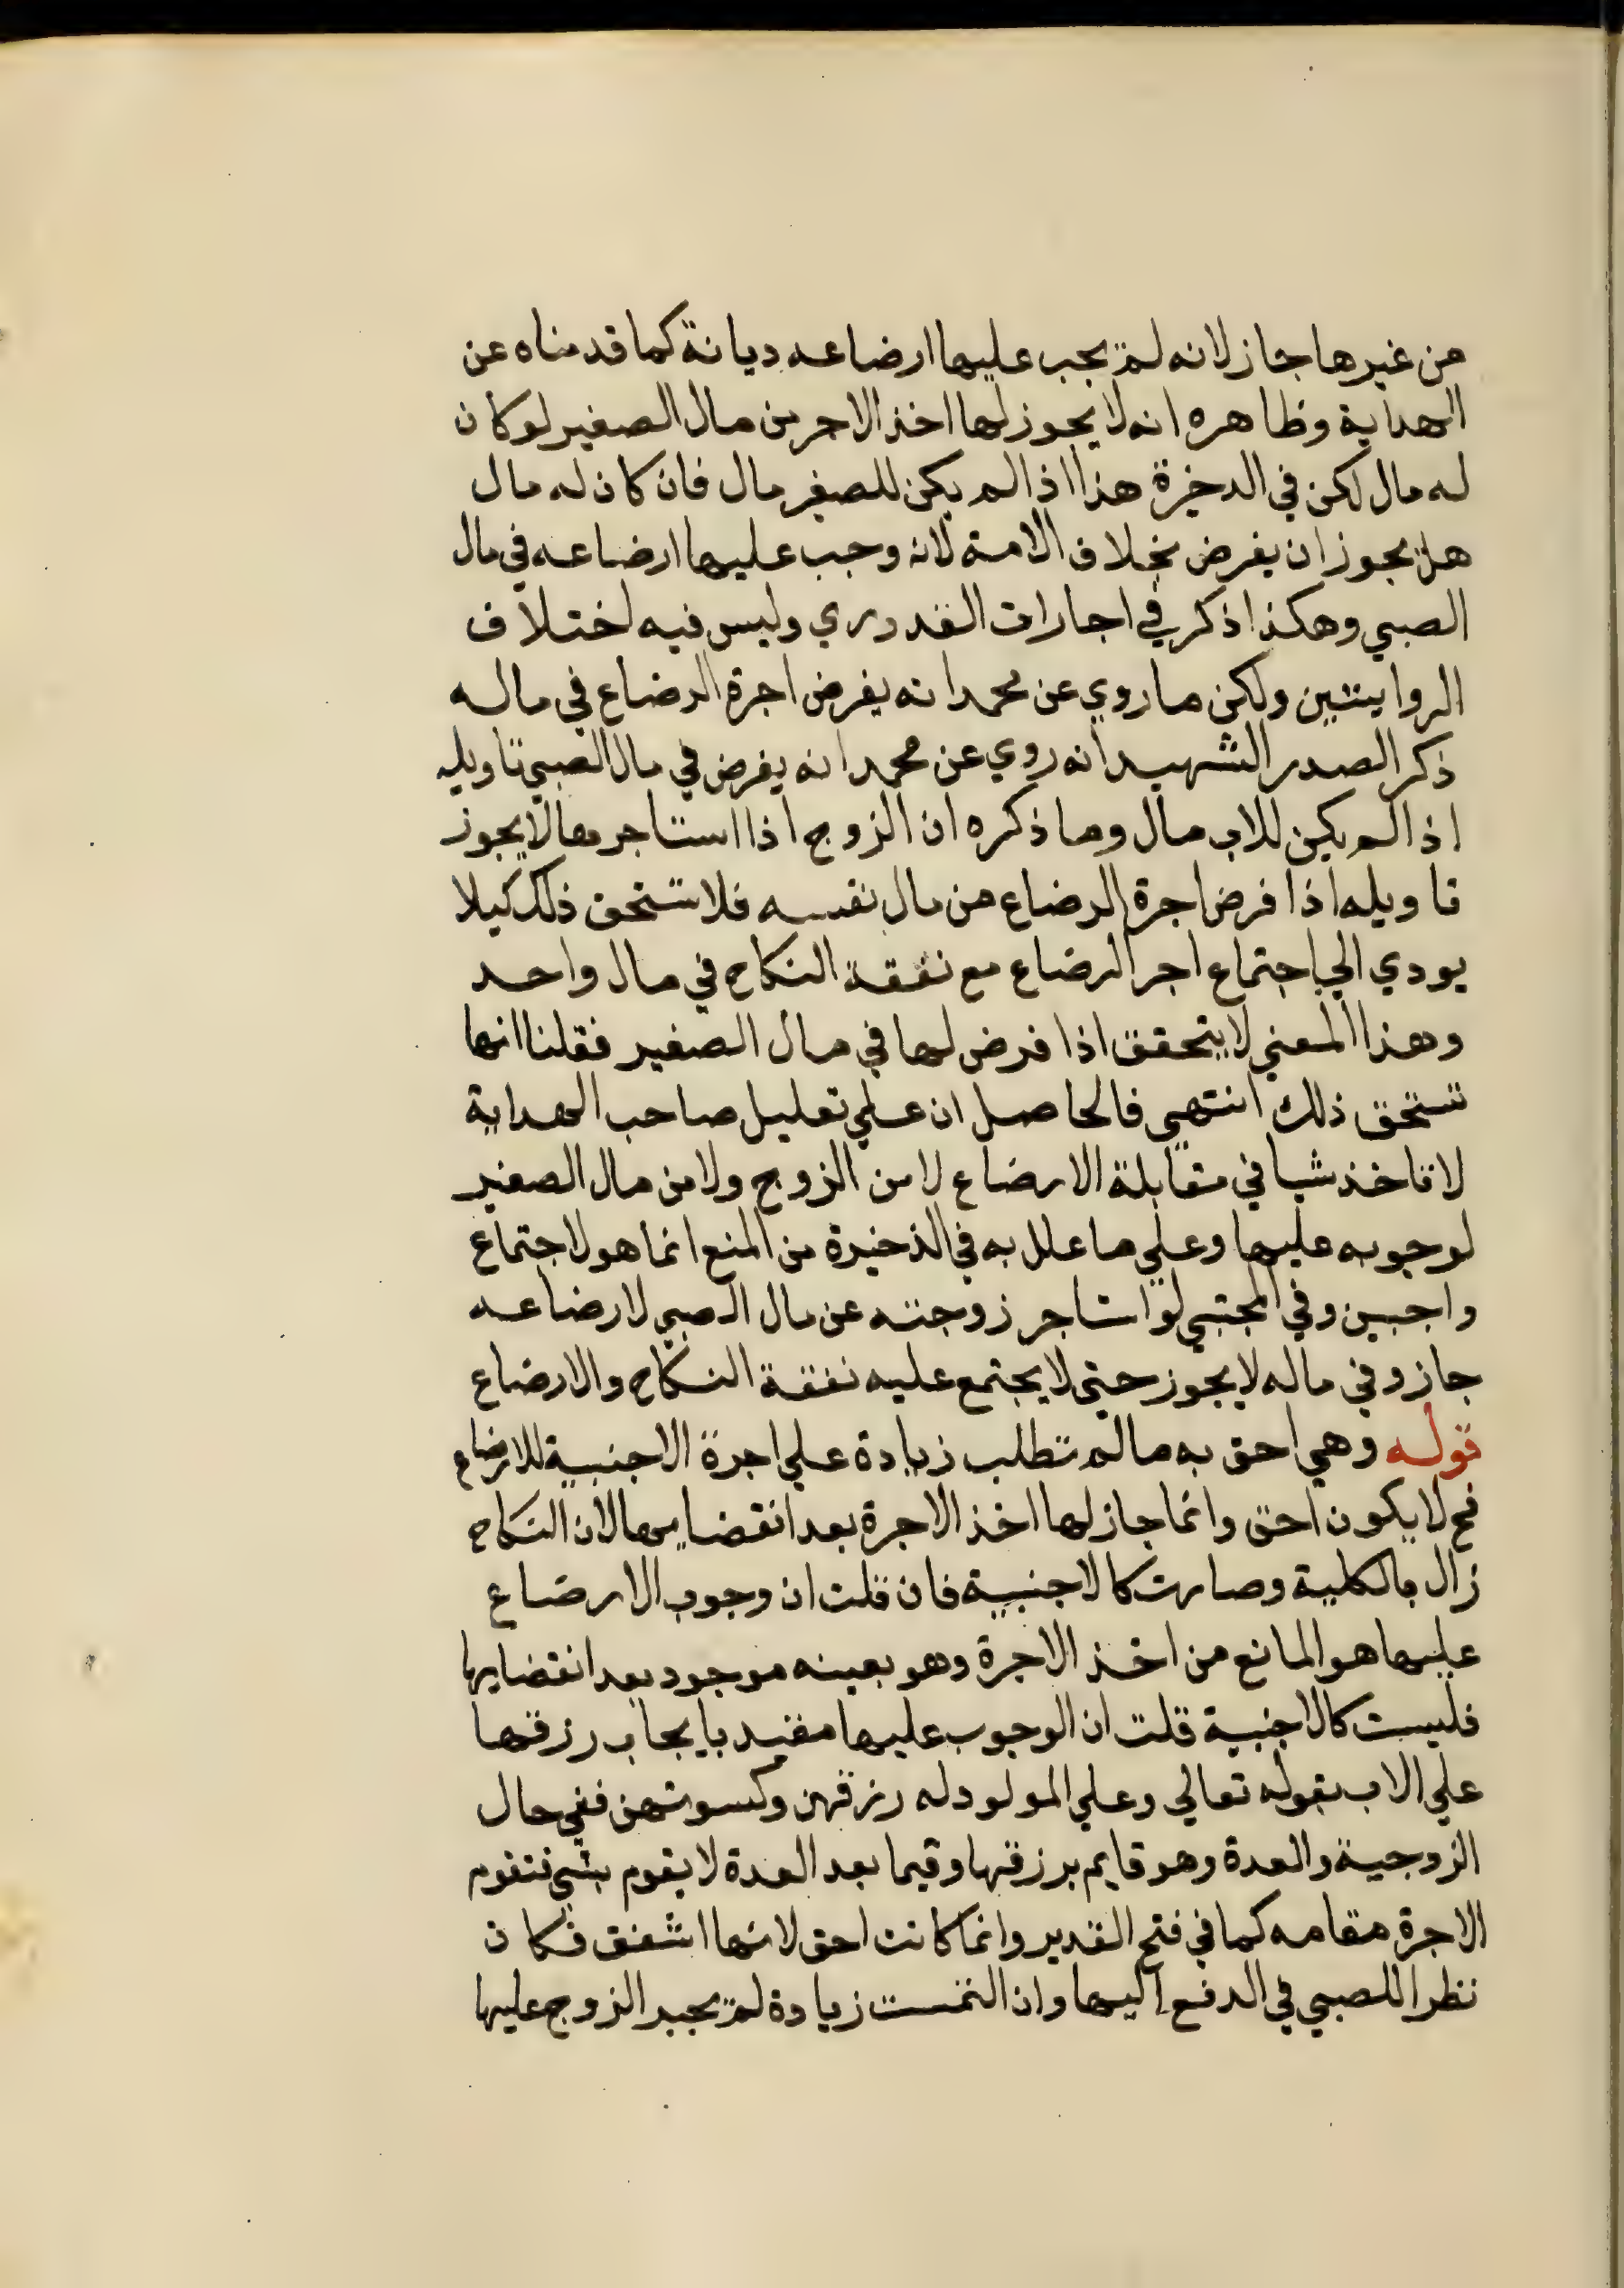 من غيرها جاز لانه لم يجب عليها ارضاعه ديانة كما قدمناه عن
الهداية وظاهره انه لا يجوز لها اخذ الاجر من مال الصغير لو كان
له مال لكن في الدخرة هذا اذا لم يكن للصغير مال فان كان له مال
هل يجوز ان يفرض بخلاف الامة لانه وجب عليها ارضاعه في مال
الصبي وهكذا ذكر في اجارات القدوري وليس فيه اختلاف
الروايتين ولكن ما روي عن محمد انه يفرض اجرة الرضاع في ماله
ذكر الصدر الشهيد انه روي عن محمد انه يفرض في مال الصبي تاويله
اذا لم يكن للاب مال وما ذكره ان الزوج اذا استاجرها لا يجوز
تاويله اذا فرض اجرة الرضاع من مال نفسه فلا تستحق ذلك كيلا
يودي الي اجتماع اجر الرضاع مع نفقة النكاح في مال واحد
وهذا المعني لا يتحقق اذا فرض لها في مال الصغير فقلنا انها
تستحق ذلك انتهي فالحاصل ان علي تعليل صاحب الهداية
لا تاخذ شيا في مقابلة الارضاع لا من الزوج ولا من مال الصغير
لوجوبه عليها وعلي ما علل به في الذخيرة من المنع انما هو لاجتماع
واجبين وفي المجتبي لو استاجر زوجته عن مال الصبي لارضاعه
جاز وفي ماله لا يجوز حتي لا يجتمع عليه نفقة النكاح والارضاع
قوله وهي احق به ما لم تطلب زيادة علي اجرة الاجنبية للارضاع
فح لا يكون احق وانما جاز لها اخذ الاجرة بعد انقضايها لان النكاح
زال بالكلية وصارت كالاجنبية فان قلت ان وجوب الارضاع
عليها هو المانع من اخذ الاجرة وهو بعينه موجود بعد انقضايها
فليست كالاجنبية قلت ان الوجوب عليها مقيد بايجاب رزقها
علي الاب بقوله تعالي وعلي المولود له رزقهن وكسوتهن ففي حال
الزوجية والعدة وهو قايم برزقها وفيما بعد العدة لا يقوم بشي فتقوم
الاجرة مقامه كما في فتح القدير وانما كانت احق لانها اشفق فكان
نظرا للصبي في الدفع اليها وان التمست زيادة لم يجبر الزوج عليها